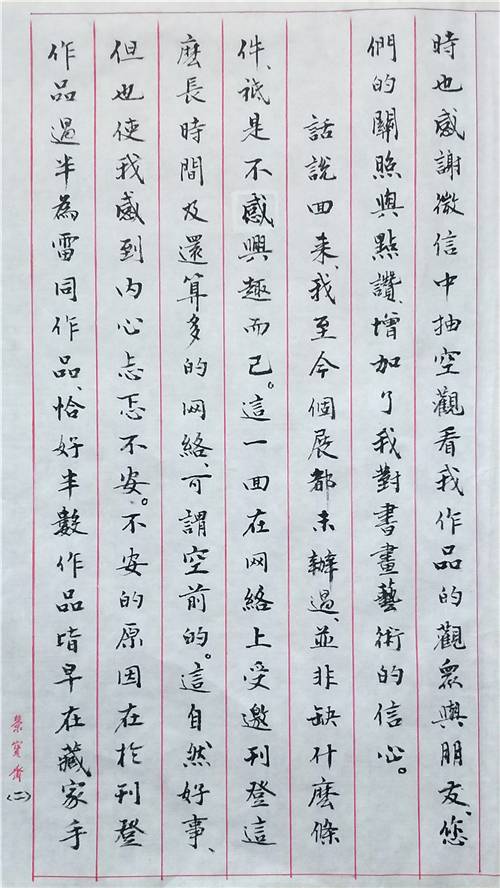 時也感謝微信中抽空觀看我作品的觀眾與朋友、您
們的關照與點讚、增加了我對書畫藝術的信心。
話說回来、我至今個展都未辦過、並非缺什麽條
件、祇是不感興趣而已。這一回在网絡上受邀刊登這
麽長時間及還算多的网絡、可謂空前的。這自然好事、
但也使我感到内心忐忑不安。不安的原因在於刊登
作品過半為雷同作品、恰好半數作品皆早在藏家手
榮寶齋
(二)